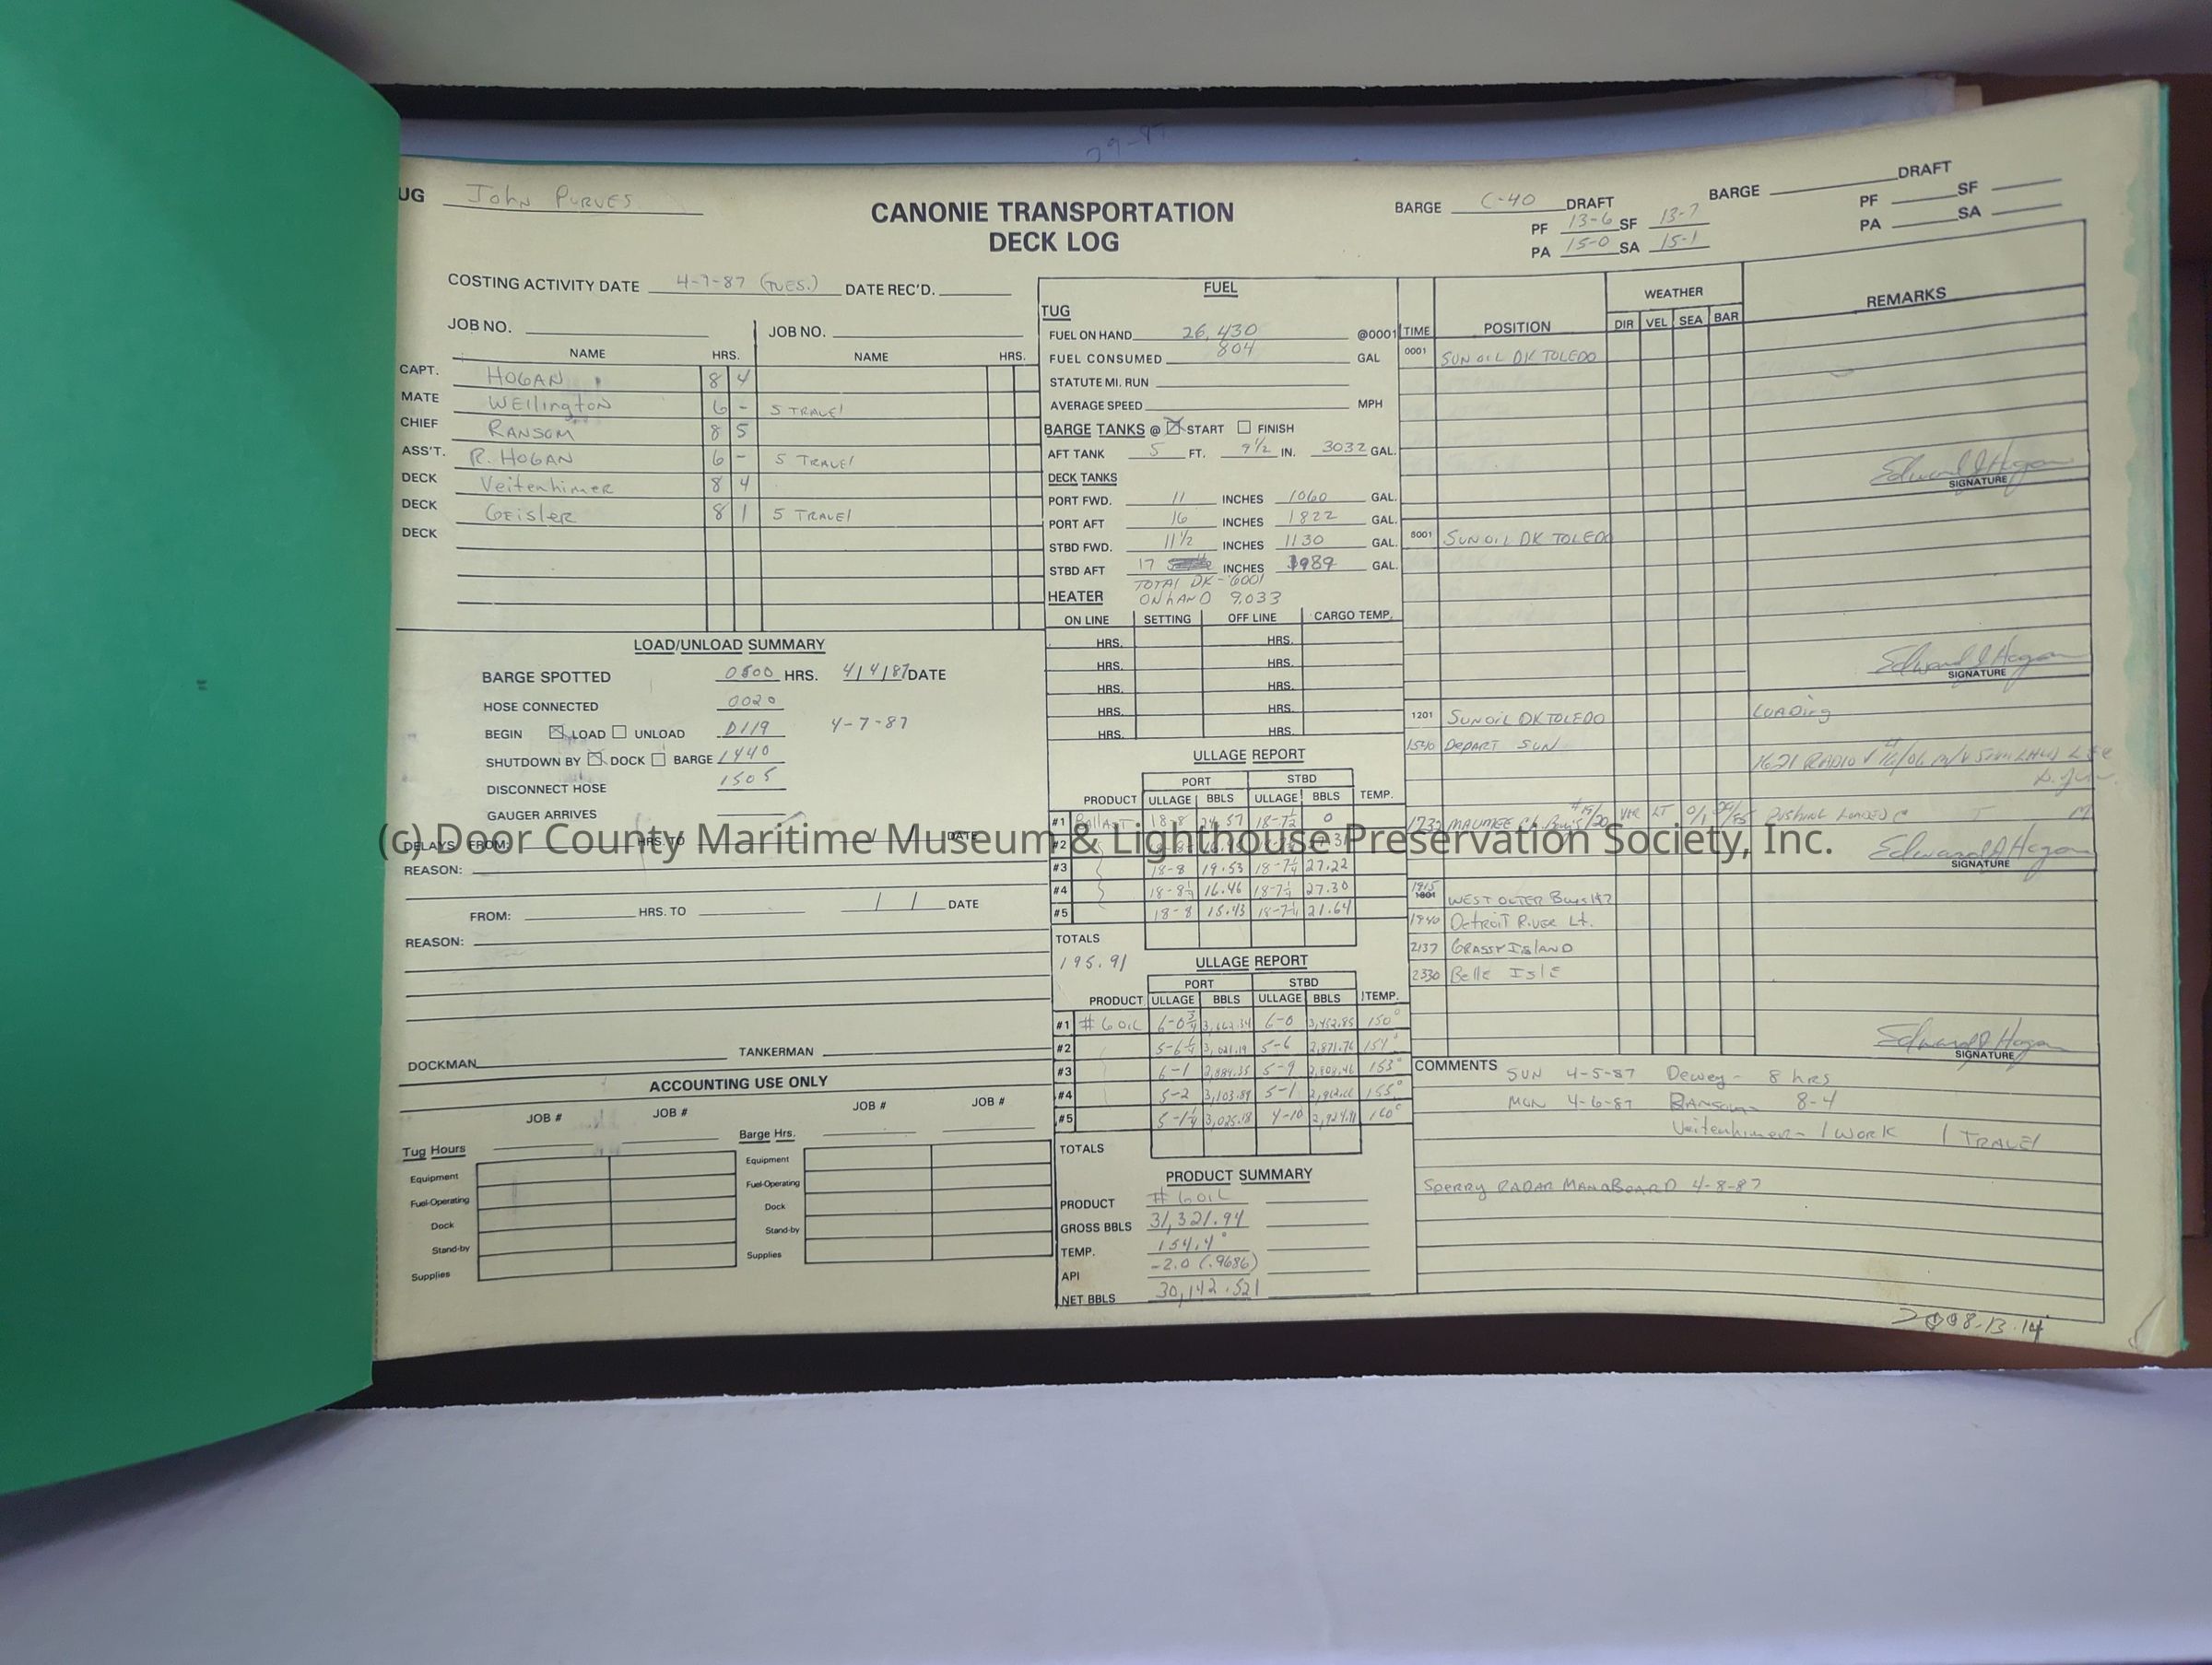 29-87
UG John Purves
CANONIE TRANSPORTATION
DECK LOG
BARGE C-40 DRAFT
PF 13-6 SF 13-7
PA 15-0 SA 15-1
BARGE DRAFT
PF SF
PA SA
COSTING ACTIVITY DATE 4-7-87 (TUES.) DATE REC'D.
JOB NO. JOB NO.
NAME HRS. NAME HRS.
CAPT. HOGAN 8 4
MATE WEllington 6 - 5 TRAVEl
CHIEF RANSOM 8 5
ASS'T. R. HOGAN 6 - 5 TRAVEl
DECK Veitenhimer 8 4
DECK GEisler 8 1 5 TRAVEl
DECK
LOAD/UNLOAD SUMMARY
BARGE SPOTTED HRS. 4/4/87 DATE
HOSE CONNECTED 0020
BEGIN LOAD UNLOAD 0119 4-7-87
SHUTDOWN BY DOCK BARGE 1440
DISCONNECT HOSE 1505
GAUGER ARRIVES
DELAYS FROM: HRS. TO / / DATE
REASON:
FROM: HRS. TO / / DATE
REASON:
DOCKMAN TANKERMAN
ACCOUNTING USE ONLY
JOB # JOB # JOB # JOB #
Tug Hours Barge Hrs.
Equipment Equipment
Fuel-Operating Fuel-Operating
Dock Dock
Stand-by Stand-by
Supplies Supplies
FUEL
TUG
FUEL ON HAND 26,430 @0001
FUEL CONSUMED 804 GAL
STATUTE MI. RUN
AVERAGE SPEED MPH
BARGE TANKS @ START FINISH
AFT TANK 5 FT. 9 1/2 IN. 3032 GAL.
DECK TANKS
PORT FWD. 11 INCHES 1060 GAL.
PORT AFT 16 INCHES 1822 GAL.
STBD FWD. 11 1/2 INCHES 1130 GAL.
STBD AFT 17 INCHES 1989 GAL.
TOTAL DK - 6001
HEATER ON hAND 9,033
ON LINE SETTING OFF LINE CARGO TEMP.
HRS. HRS.
HRS. HRS.
HRS. HRS.
HRS. HRS.
HRS. HRS.
ULLAGE REPORT
PORT STBD
PRODUCT ULLAGE BBLS ULLAGE BBLS TEMP.
#1 BallAST 18-8 24.57 18-7 1/2 0
#2
#3 18-8 19.53 18-7 1/4 27.22
#4 16.46 18-7 1/4 27.30
#5 18-8 15.43 18-7 1/4 21.64
TOTALS
195.91
ULLAGE REPORT
PORT STBD
PRODUCT ULLAGE BBLS ULLAGE BBLS TEMP.
#1 # 6 OIL 6-0 3/4 6-0 150°
#2 5-6 1/4 3,021.19 5-6 2,871.76 151°
#3 6-1 5-9 153°
#4 5-2 3,103.89 5-1 155°
#5 5-1 1/4 3,025.18 4-10 160°
TOTALS
PRODUCT SUMMARY
PRODUCT # 6 OIL
GROSS BBLS 31,321.94
TEMP. 154.4°
API -2.0 (.9686)
NET BBLS 30,142.521
TIME POSITION WEATHER REMARKS
DIR VEL SEA BAR
0001 SUN OIL DK TOLEDO
Edward J Hogan
SIGNATURE
6001 SUN OIL DK TOLEDO
Edward J Hogan
SIGNATURE
1201 SUN OIL DK TOLEDO LOADing
1540 DEPART SUN
1621 RADIO
1732 MAUMEE VAR LT 0/1 PUSHING LOADED
Edward J Hogan
SIGNATURE
1915
1801 WEST OUTER Buys
1940 Detroit River Lt.
2137 GRASSY ISLAND
2330 BellE IslE
Edward J Hogan
SIGNATURE
COMMENTS SUN 4-5-87 Dewey - 8 hrs
MON 4-6-87 RANSOM- 8-4
Veitenhimer- 1 WORK 1 TRAVEl
SPERRY RADAR MAN aBOARD 4-8-87
2008.13.14
(c) Door County Maritime Museum & Lighthouse Preservation Society, Inc.